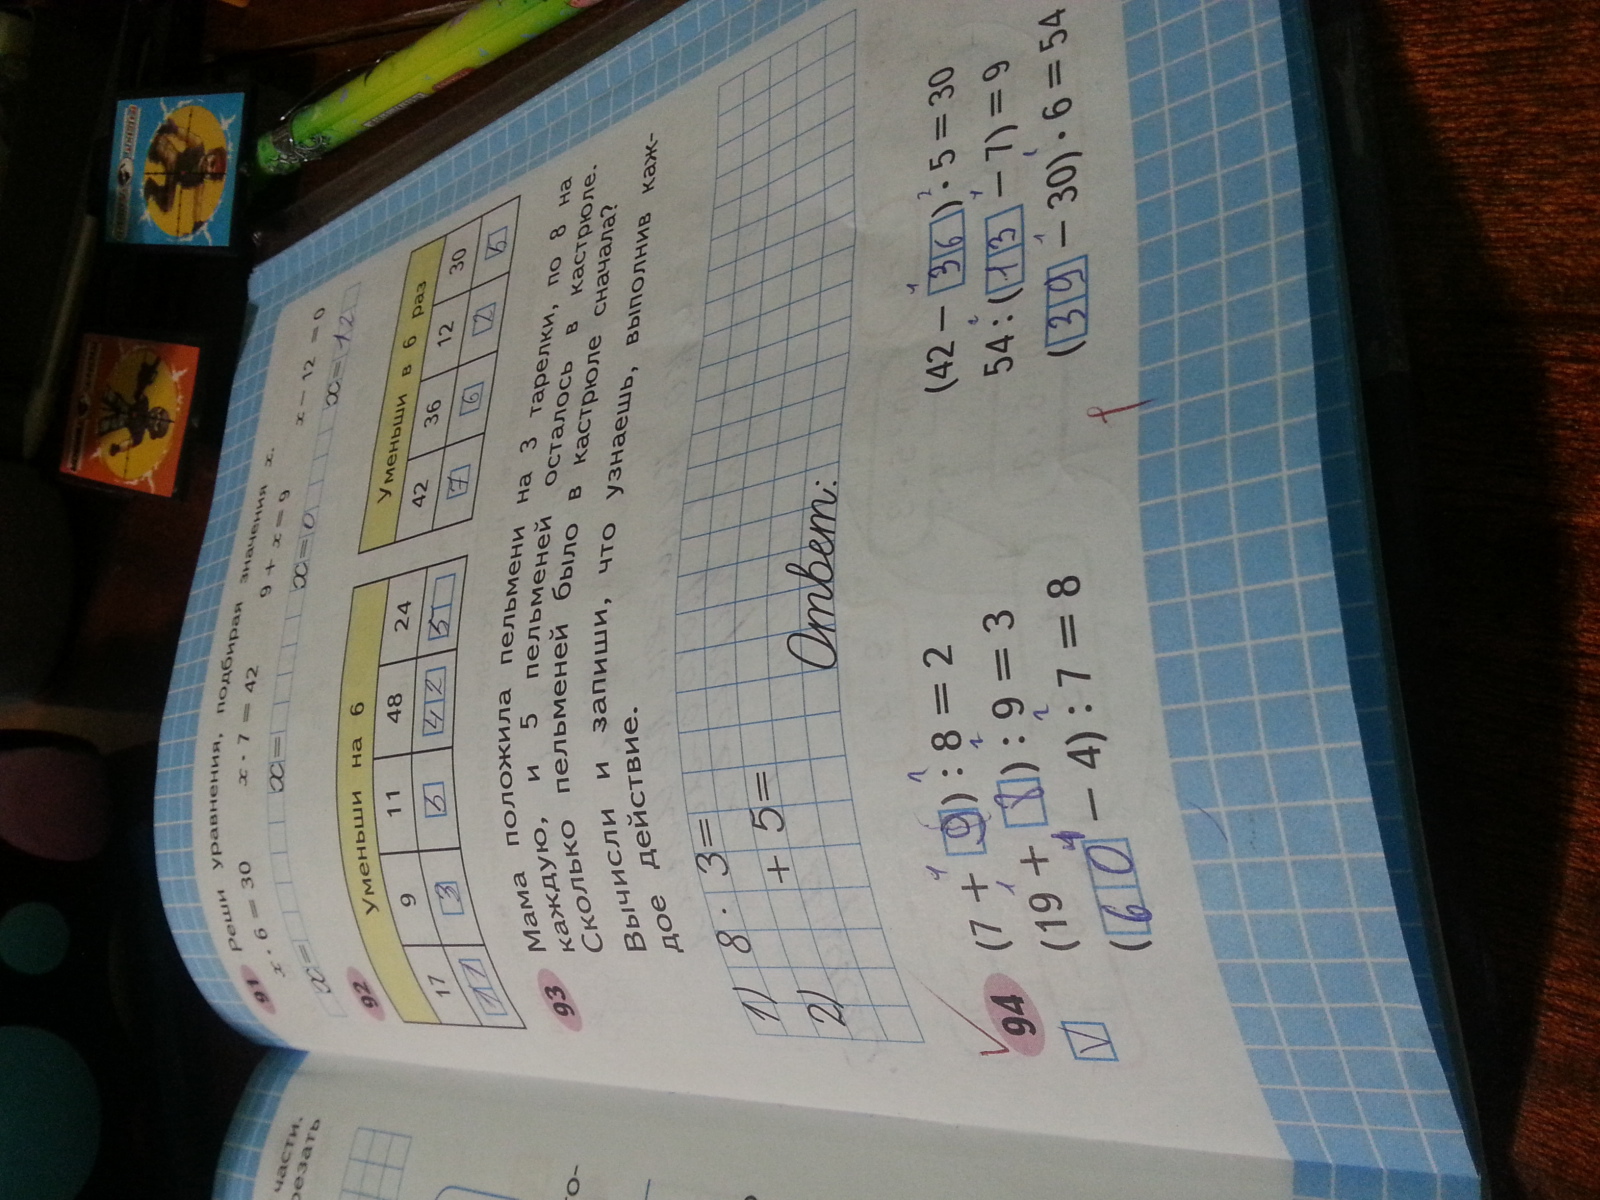 части.
резать
91 Реши уравнения, подбирая значения x.
x · 6 = 30 x · 7 = 42 9 + x = 9 x − 12 = 0
x= x= x=0 x=12
92 Уменьши на 6 Уменьши в 6 раз
17 9 11 48 24 42 36 12 30
11 3 5 42 5 7 6 2 5
93 Мама положила пельмени на 3 тарелки, по 8 на
каждую, и 5 пельменей осталось в кастрюле.
Сколько пельменей было в кастрюле сначала?
Вычисли и запиши, что узнаешь, выполнив каж-
дое действие.
1) 8 · 3=
2) + 5=
Ответ:
94 (7 + 9) : 8 = 2 (42 − 36) · 5 = 30
(19 + 8) : 9 = 3 54 : (13 − 7) = 9
(60 − 4) : 7 = 8 (39 − 30) · 6 = 54